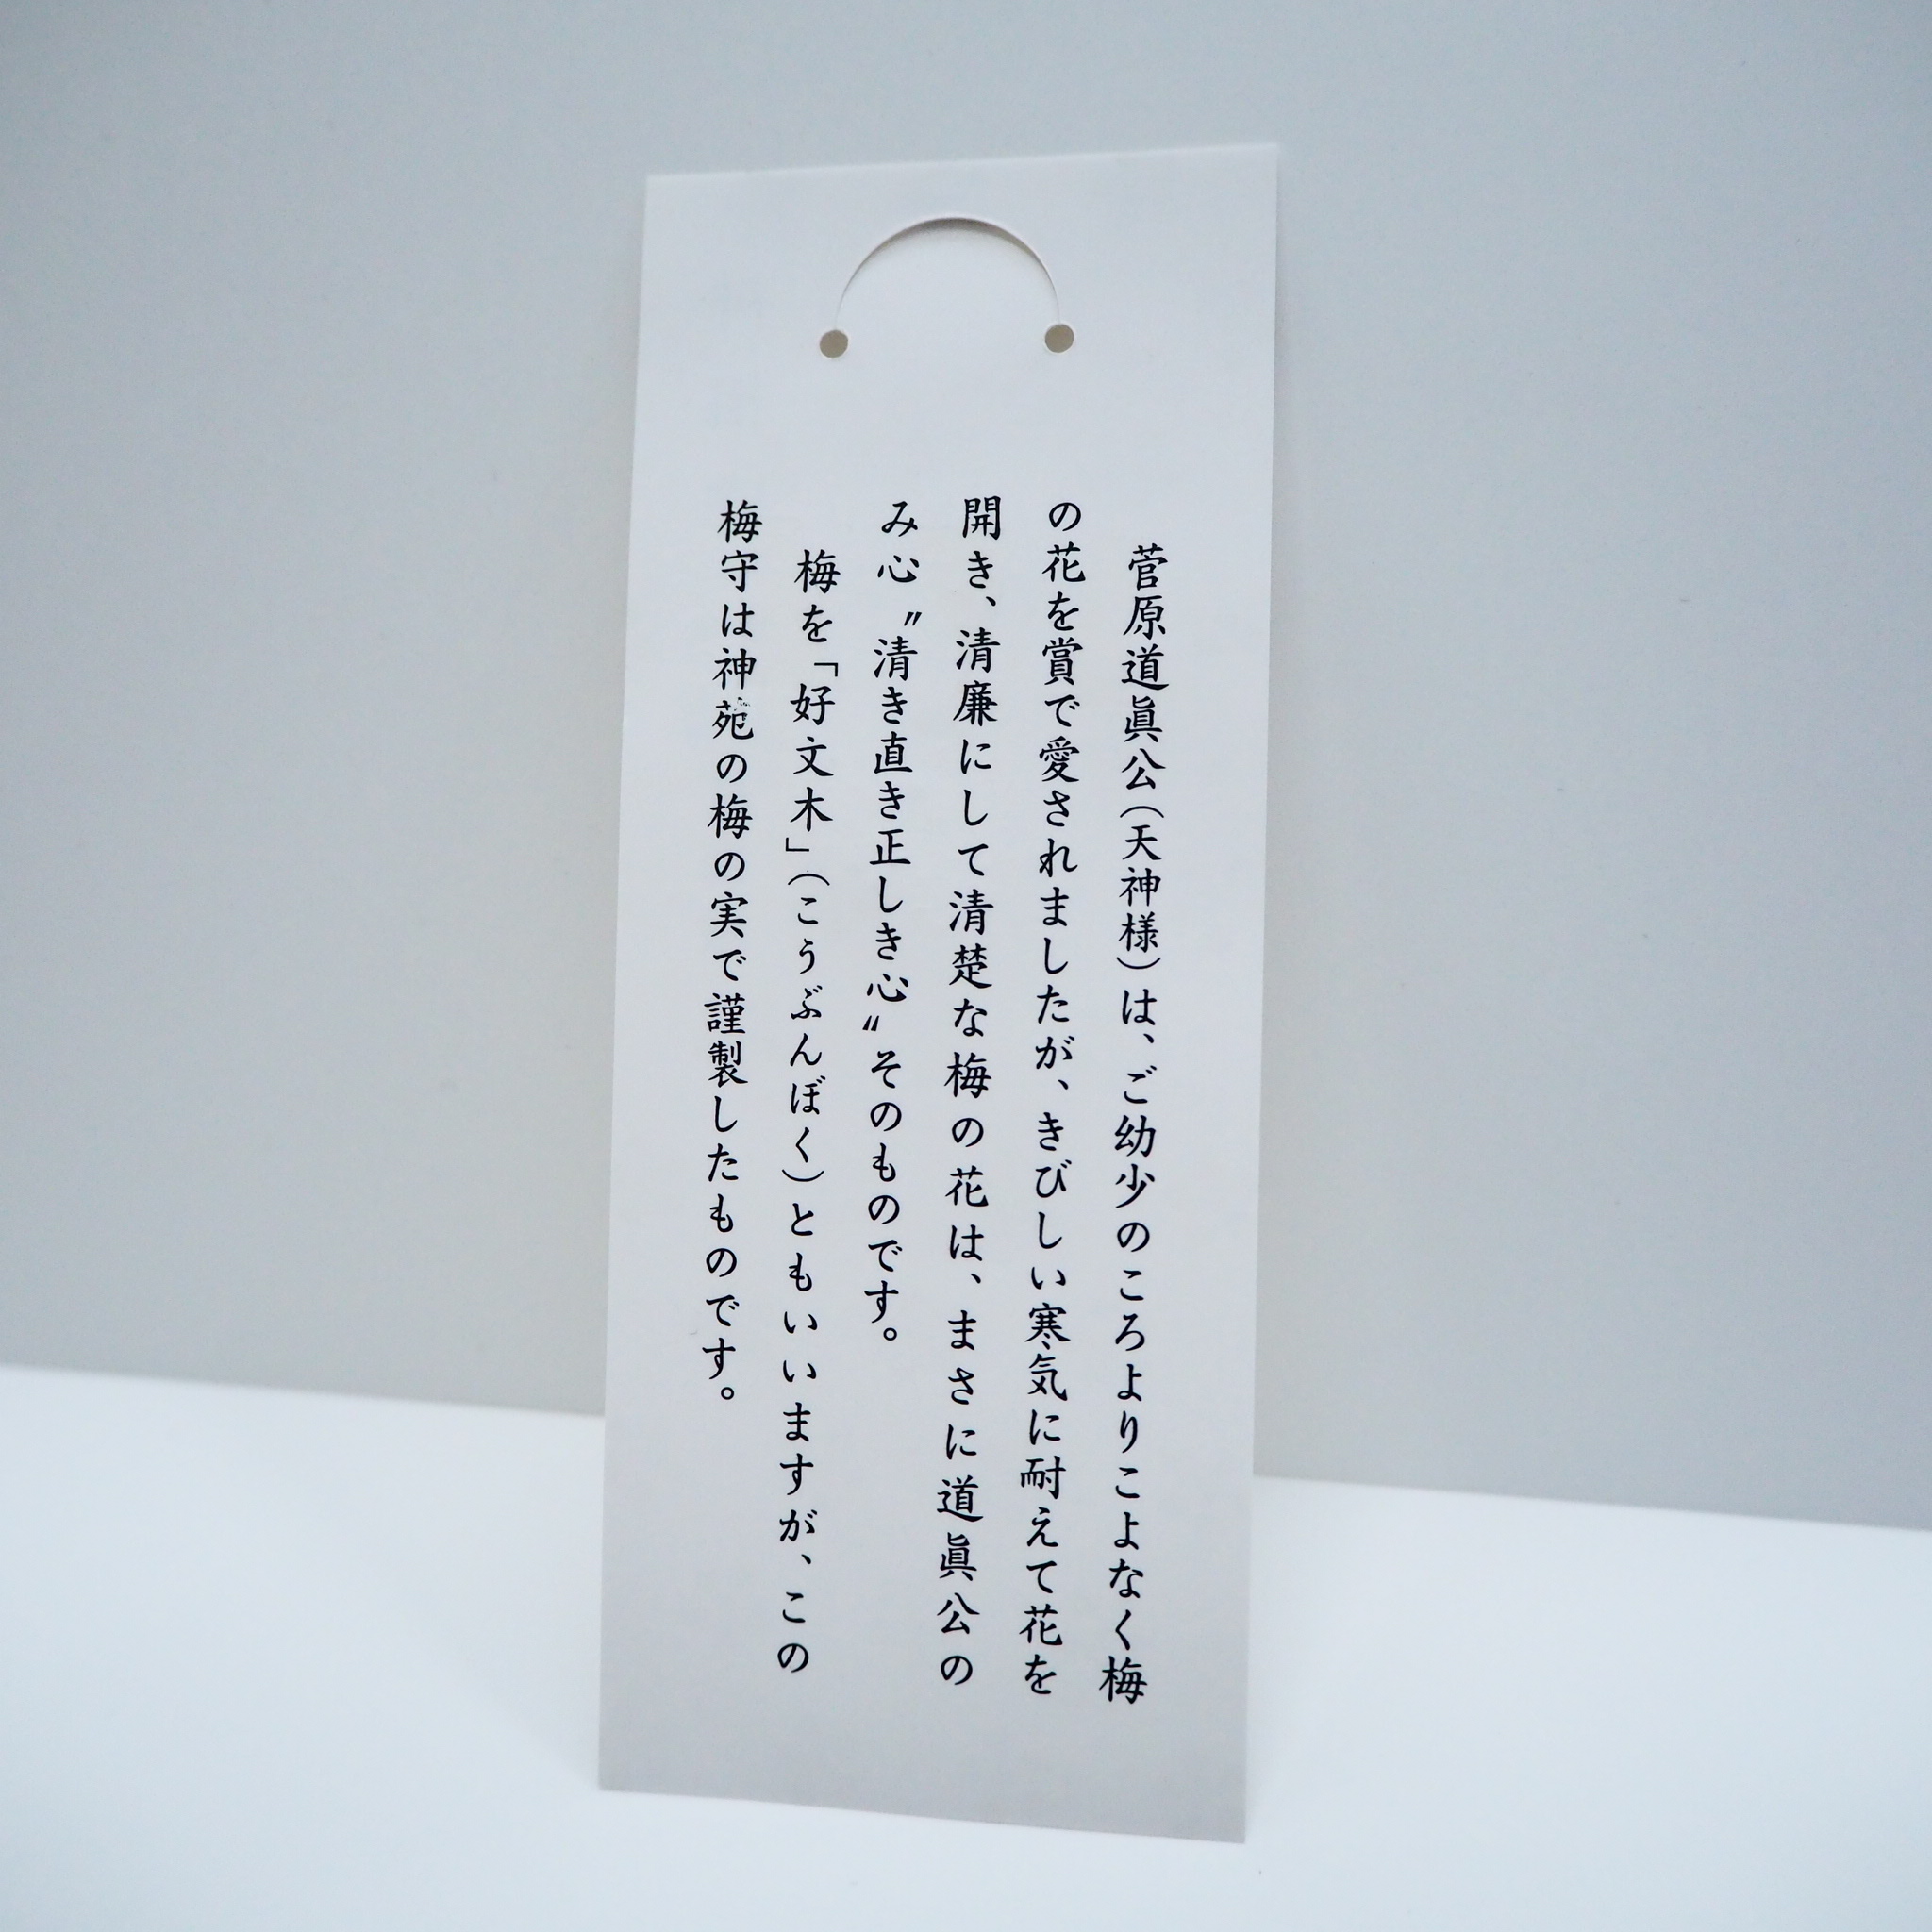 菅原道眞公(天神様)は、ご幼少のころよりこよなく梅
の花を賞で愛されましたが、きびしい寒気に耐えて花を
開き、清廉にして清楚な梅の花は、まさに道眞公の
み心〝清き直き正しき心〟そのものです。
梅を「好文木」(こうぶんぼく)ともいいますが、この
梅守は神苑の梅の実で謹製したものです。